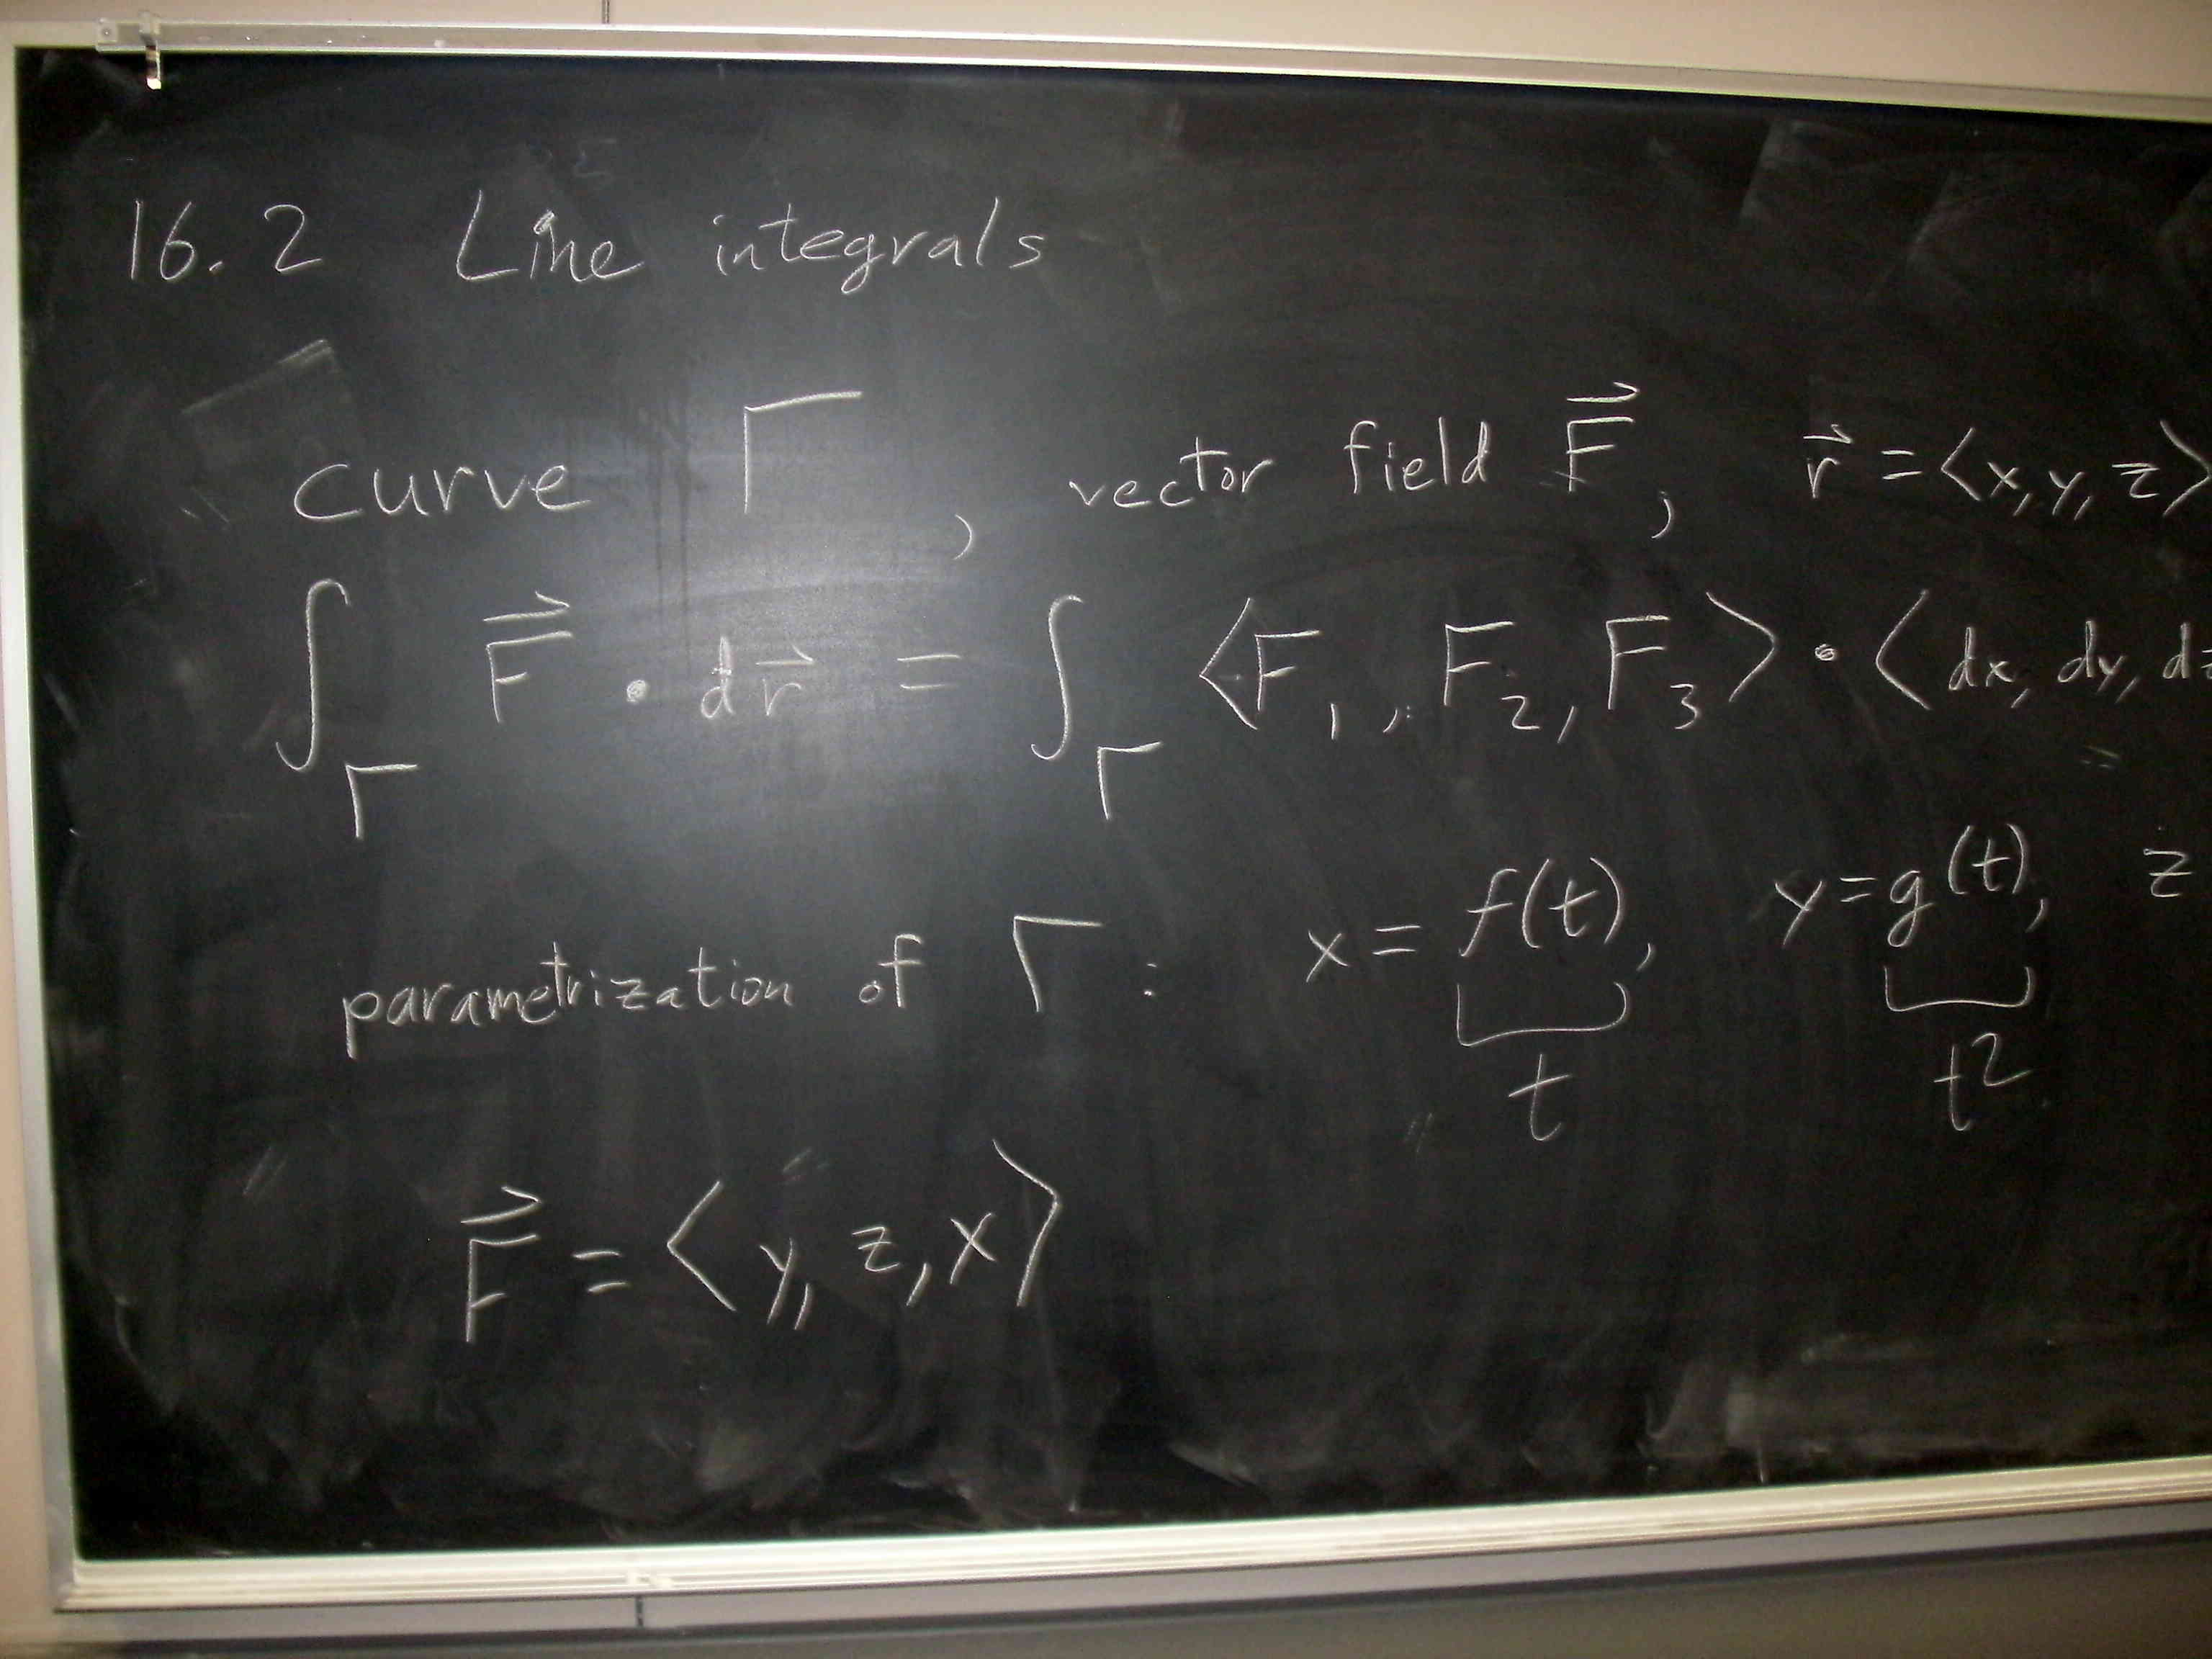 16.2 Line integrals
curve Γ, vector field F⃗, r⃗ = ⟨x, y, z⟩
∫_Γ F⃗ • dr⃗ = ∫_Γ ⟨F₁, F₂, F₃⟩ • ⟨dx, dy, dz
parametrization of Γ : x = f(t), y = g(t), z
t t²
F⃗ = ⟨y, z, x⟩